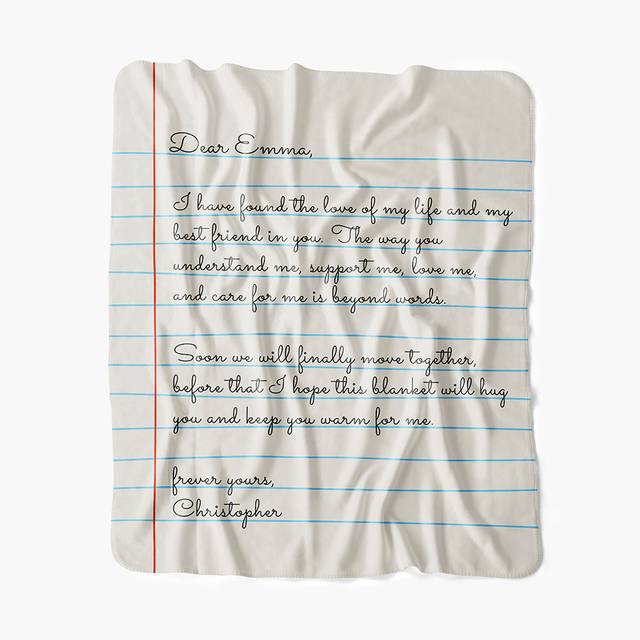 Dear Emma,
I have found the love of my life and my
best friend in you. The way you
understand me, support me, love me,
and care for me is beyond words.
Soon we will finally move together,
before that I hope this blanket will hug
you and keep you warm for me.
frever yours,
Christopher